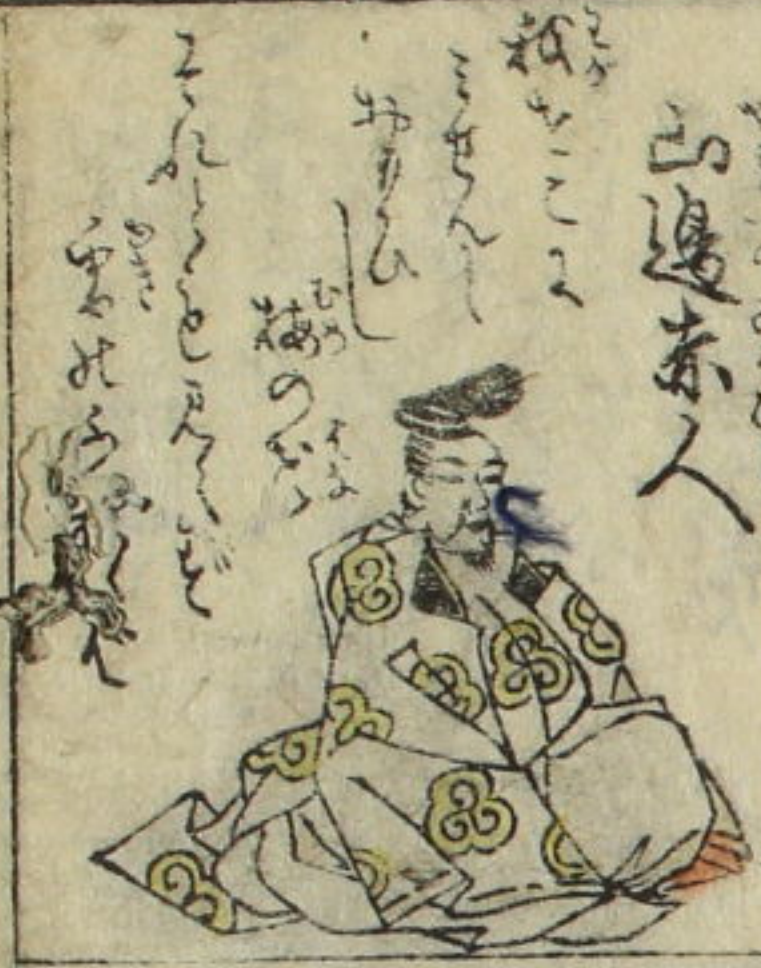 山邊赤人
我せこに
みせんと
おもひし
梅の花
それとも見えず
雪のふ